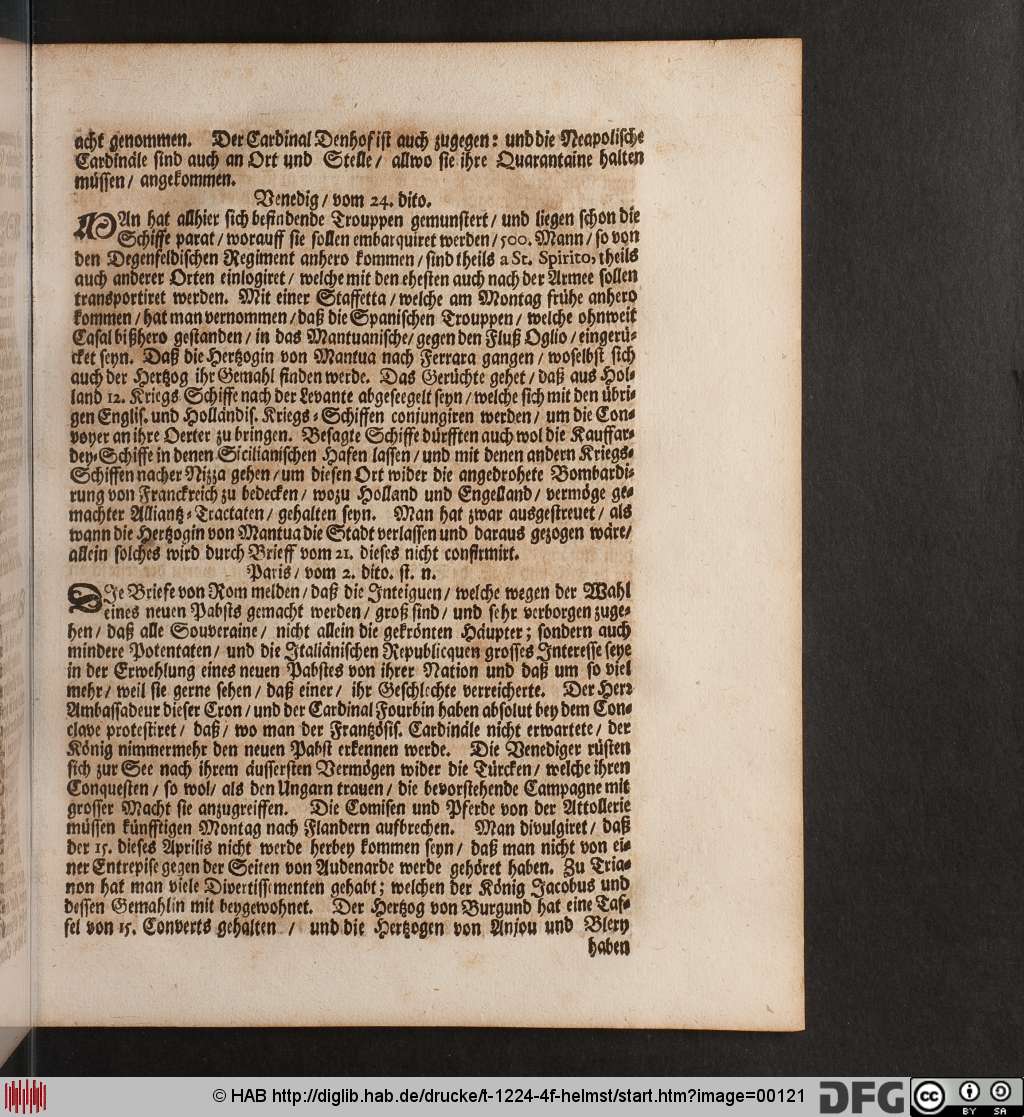 acht genommen. Der Cardinal Denhof ist auch zugegen: und die Neapolische
Cardinäle sind auch an Ort und Stelle / allwo sie ihre Quarantaine halten
müssen / angekommen.
Venedig / vom 24. dito.
MAn hat allhier sich befindende Trouppen gemunstert / und liegen schon die
Schiffe parat / worauff sie sollen embarquiret werden / 500. Mann / so von
den Degenfeldischen Regiment anhero kommen / sind theils a St. Spirito, theils
auch anderer Orten einlogiret / welche mit den ehesten auch nach der Armee sollen
transportiret werden. Mit einer Staffetta / welche am Montag frühe anhero
kommen / hat man vernommen / daß die Spanischen Trouppen / welche ohnweit
Casal bißhero gestanden / in das Mantuanische / gegen den Fluß Oglio / eingerü-
cket seyn. Daß die Hertzogin von Mantua nach Ferrara gangen / woselbst sich
auch der Hertzog ihr Gemahl finden werde. Das Gerüchte gehet / daß aus Hol-
land 12. Kriegs Schiffe nach der Levante abgeseegelt seyn / welche sich mit den übri-
gen Englis. und Holländis. Kriegs-Schiffen conjungiren werden / um die Con-
voyer an ihre Oerter zu bringen. Besagte Schiffe dürfften auch wol die Kauffar-
dey-Schiffe in denen Sicilianischen Hafen lassen / und mit denen andern Kriegs-
Schiffen nacher Nizza gehen / um diesen Ort wider die angedrohete Bombardi-
rung von Franckreich zu bedecken / wozu Holland und Engelland / vermöge ge-
machter Alliantz-Tractaten / gehalten seyn. Man hat zwar ausgestreuet / als
wann die Hertzogin von Mantua die Stadt verlassen und daraus gezogen wäre /
allein solches wird durch Brieff vom 21. dieses nicht confirmirt.
Paris / vom 2. dito. st. n.
DIe Briefe von Rom melden / daß die Inteiguen / welche wegen der Wahl
eines neuen Pabsts gemacht werden / groß sind / und sehr verborgen zuge-
hen / daß alle Souveraine / nicht allein die gekrönten Häupter; sondern auch
mindere Potentaten / und die Italiänischen Republicquen grosses Interesse seye
in der Erwehlung eines neuen Pabstes von ihrer Nation und daß um so viel
mehr / weil sie gerne sehen / daß einer / ihr Geschlechte verreicherte. Der Herr
Ambassadeur dieser Cron / und der Cardinal Fourbin haben absolut bey dem Con-
clave protestiret / daß / wo man der Frantzösis. Cardinäle nicht erwartete / der
König nimmermehr den neuen Pabst erkennen werde. Die Venediger rüsten
sich zur See nach ihrem äussersten Vermögen wider die Türcken / welche ihren
Conquesten / so wol / als den Ungarn trauen / die bevorstehende Campagne mit
grosser Macht sie anzugreiffen. Die Comisen und Pferde von der Attollerie
müssen künfftigen Montag nach Flandern aufbrechen. Man divulgiret / daß
der 15. dieses Aprilis nicht werde herbey kommen seyn / daß man nicht von ei-
ner Entrepise gegen der Seiten von Audenarde werde gehöret haben. Zu Tria-
non hat man viele Divertissementen gehabt; welchen der König Jacobus und
dessen Gemahlin mit beygewohnet. Der Hertzog von Burgund hat eine Taf-
fel von 15. Converts gehalten / und die Hertzogen von Anjou und Blery
haben
© HAB http://diglib.hab.de/drucke/t-1224-4f-helmst/start.htm?image=00121
DFG
cc
BY SA